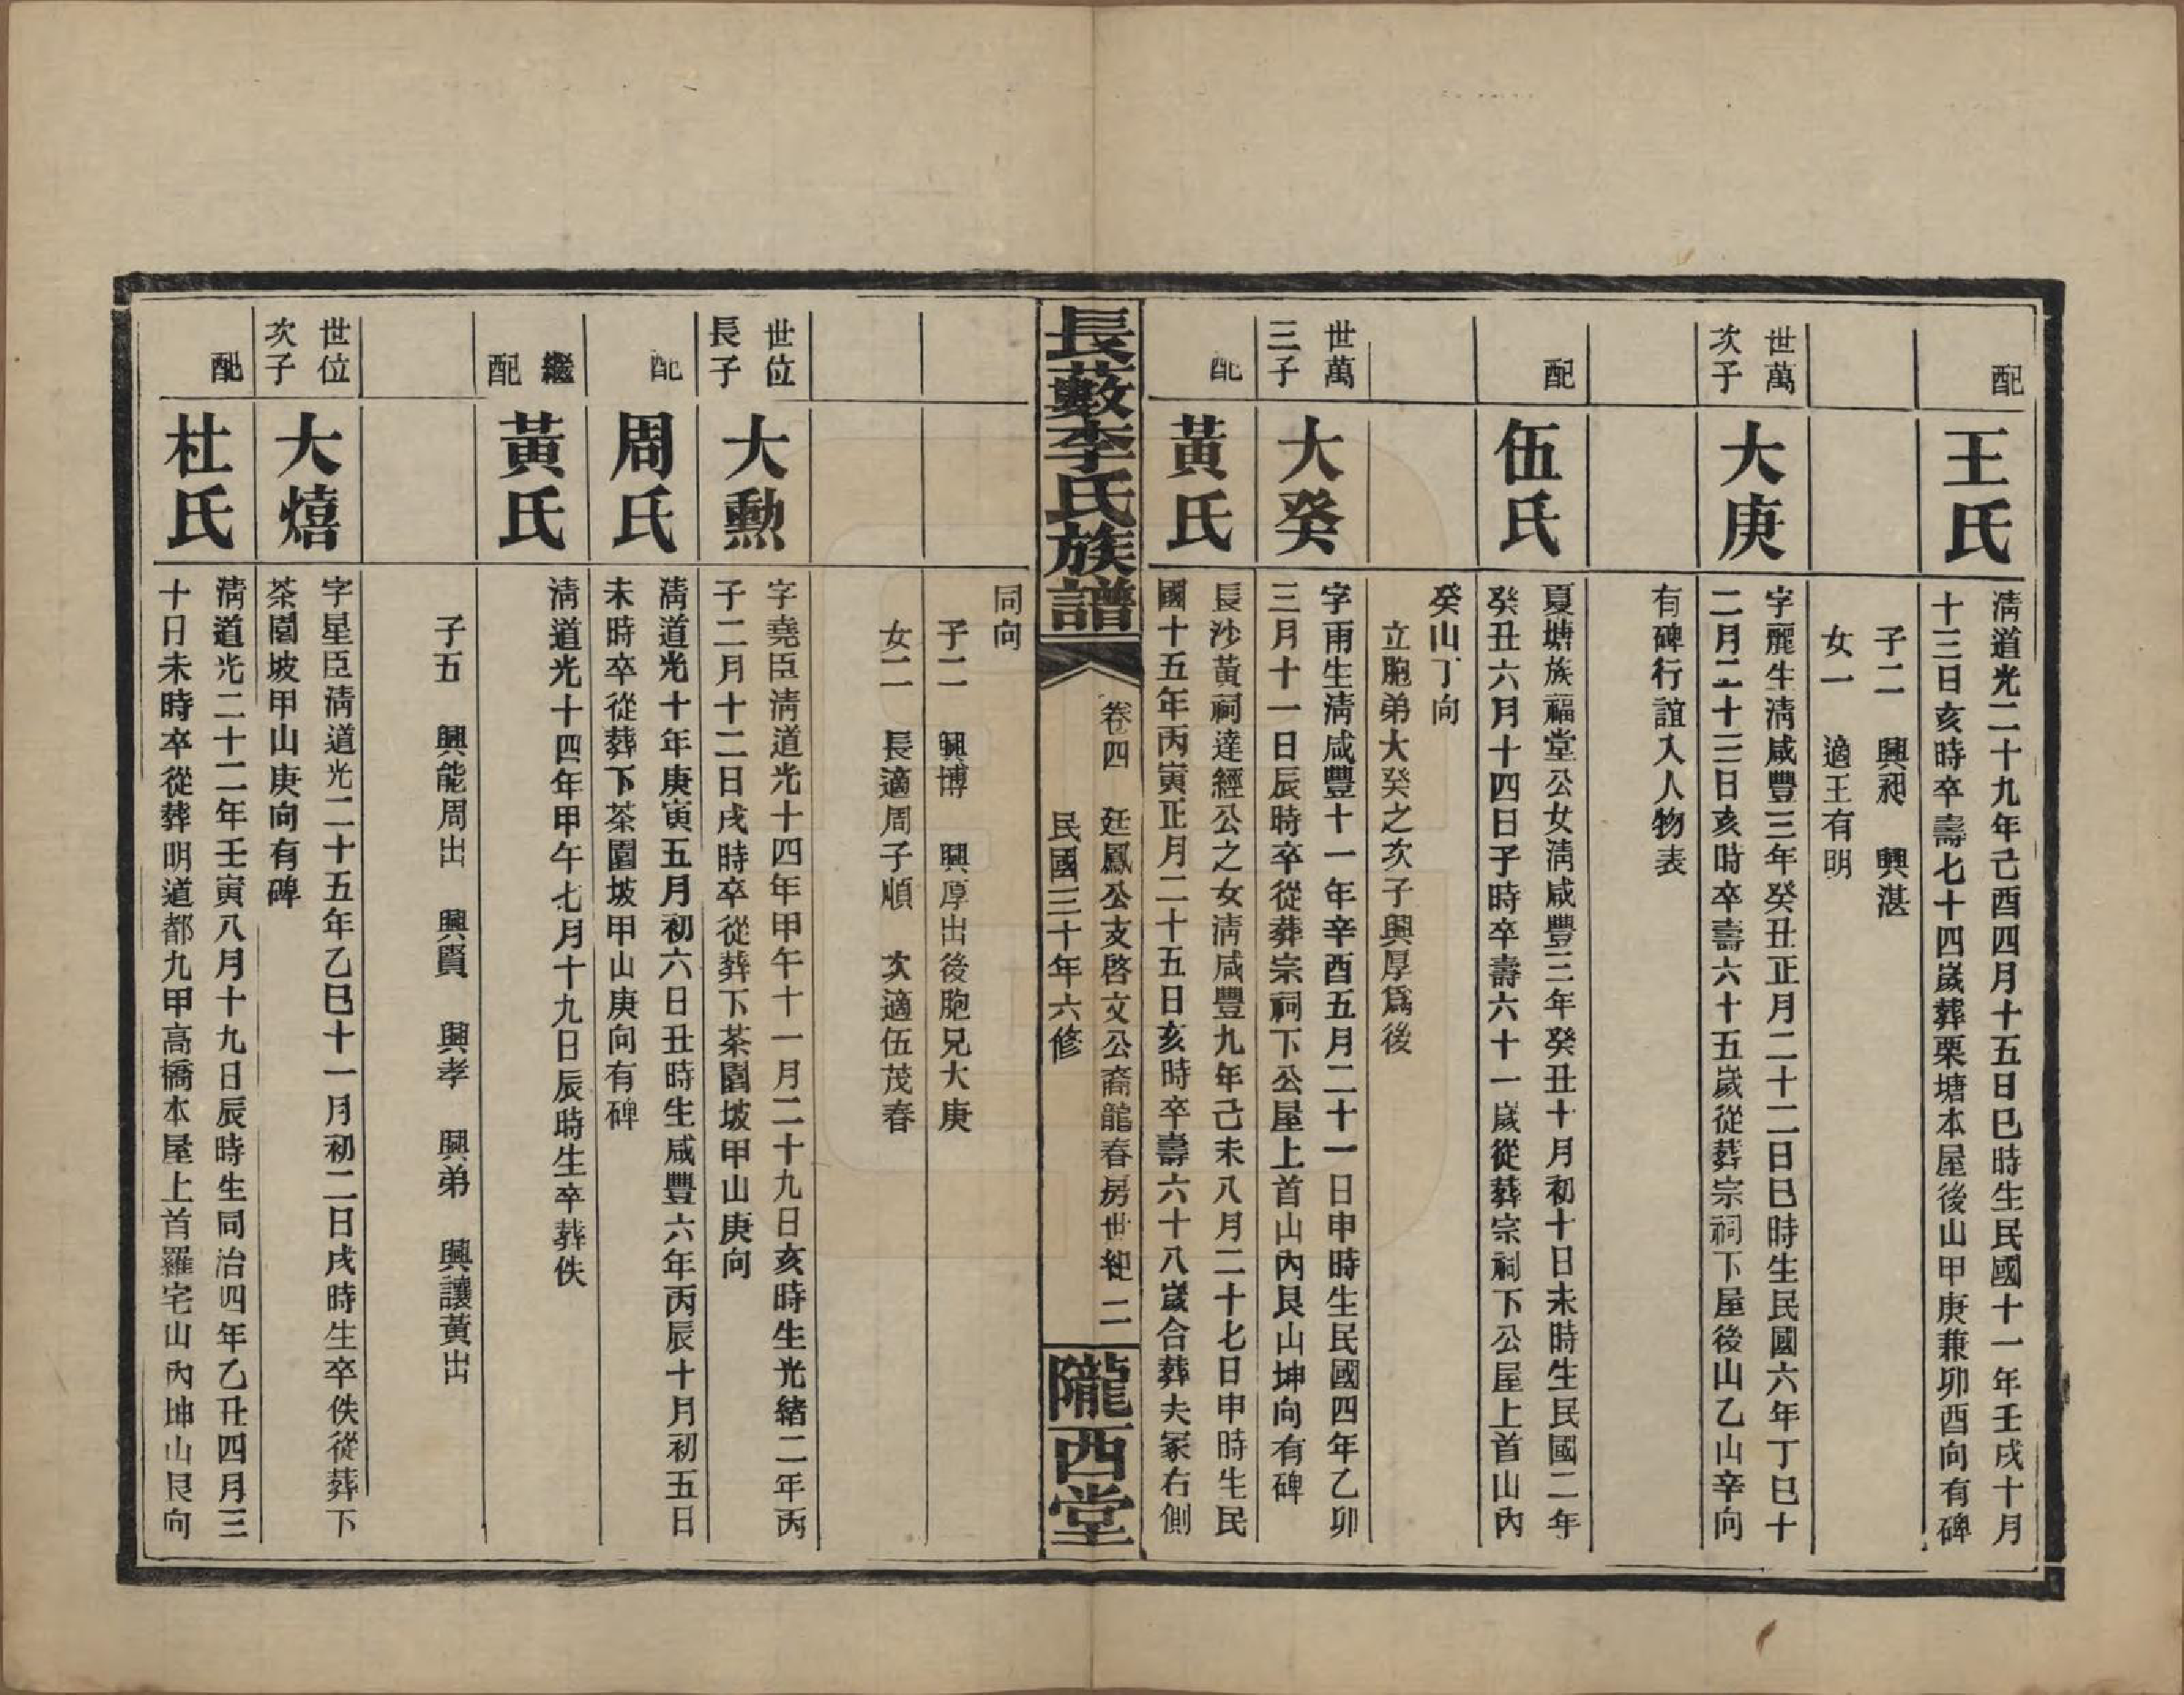 配
王氏
淸道光二十九年己酉四月十五日巳時生民國十一年壬戌十月
十三日亥時卒壽七十四歲葬栗塘本屋後山甲庚兼卯酉向有碑
子二　興昶　興湛
女一　適王有明
世萬
次子
大庚
字麗生淸咸豐三年癸丑正月二十二日巳時生民國六年丁巳十
二月二十三日亥時卒壽六十五歲從葬宗祠下屋後山乙山辛向
有碑行誼入人物表
配
伍氏
夏塘族福堂公女淸咸豐三年癸丑十月初十日未時生民國二年
癸丑六月十四日子時卒壽六十一歲從葬宗祠下公屋上首山內
癸山丁向
立胞弟大癸之次子興厚爲後
世萬
三子
大癸
字雨生淸咸豐十一年辛酉五月二十一日申時生民國四年乙卯
三月十一日辰時卒從葬宗祠下公屋上首山內艮山坤向有碑
配
黃氏
長沙黃祠達經公之女淸咸豐九年己未八月二十七日申時生民
國十五年丙寅正月二十五日亥時卒壽六十八歲合葬夫冢右側
長藪李氏族譜
卷四　廷鳳公支啓文公裔龍春房世紀　二
民國三十年六修
隴西堂
同向
子二　興博　興厚出後胞兄大庚
女二　長適周子順　次適伍茂春
世位
長子
大勲
字堯臣淸道光十四年甲午十一月二十九日亥時生光緒二年丙
子二月十二日戌時卒從葬下茶園坡甲山庚向
配
周氏
淸道光十年庚寅五月初六日丑時生咸豐六年丙辰十月初五日
未時卒從葬下茶園坡甲山庚向有碑
繼
配
黃氏
淸道光十四年甲午七月十九日辰時生卒葬佚
子五　興能周出　興賢　興孝　興弟　興讓黃出
世位
次子
大熺
字星臣淸道光二十五年乙巳十一月初二日戌時生卒佚從葬下
茶園坡甲山庚向有碑
配
杜氏
淸道光二十二年壬寅八月十九日辰時生同治四年乙丑四月三
十日未時卒從葬明道都九甲高橋本屋上首羅宅山內坤山艮向